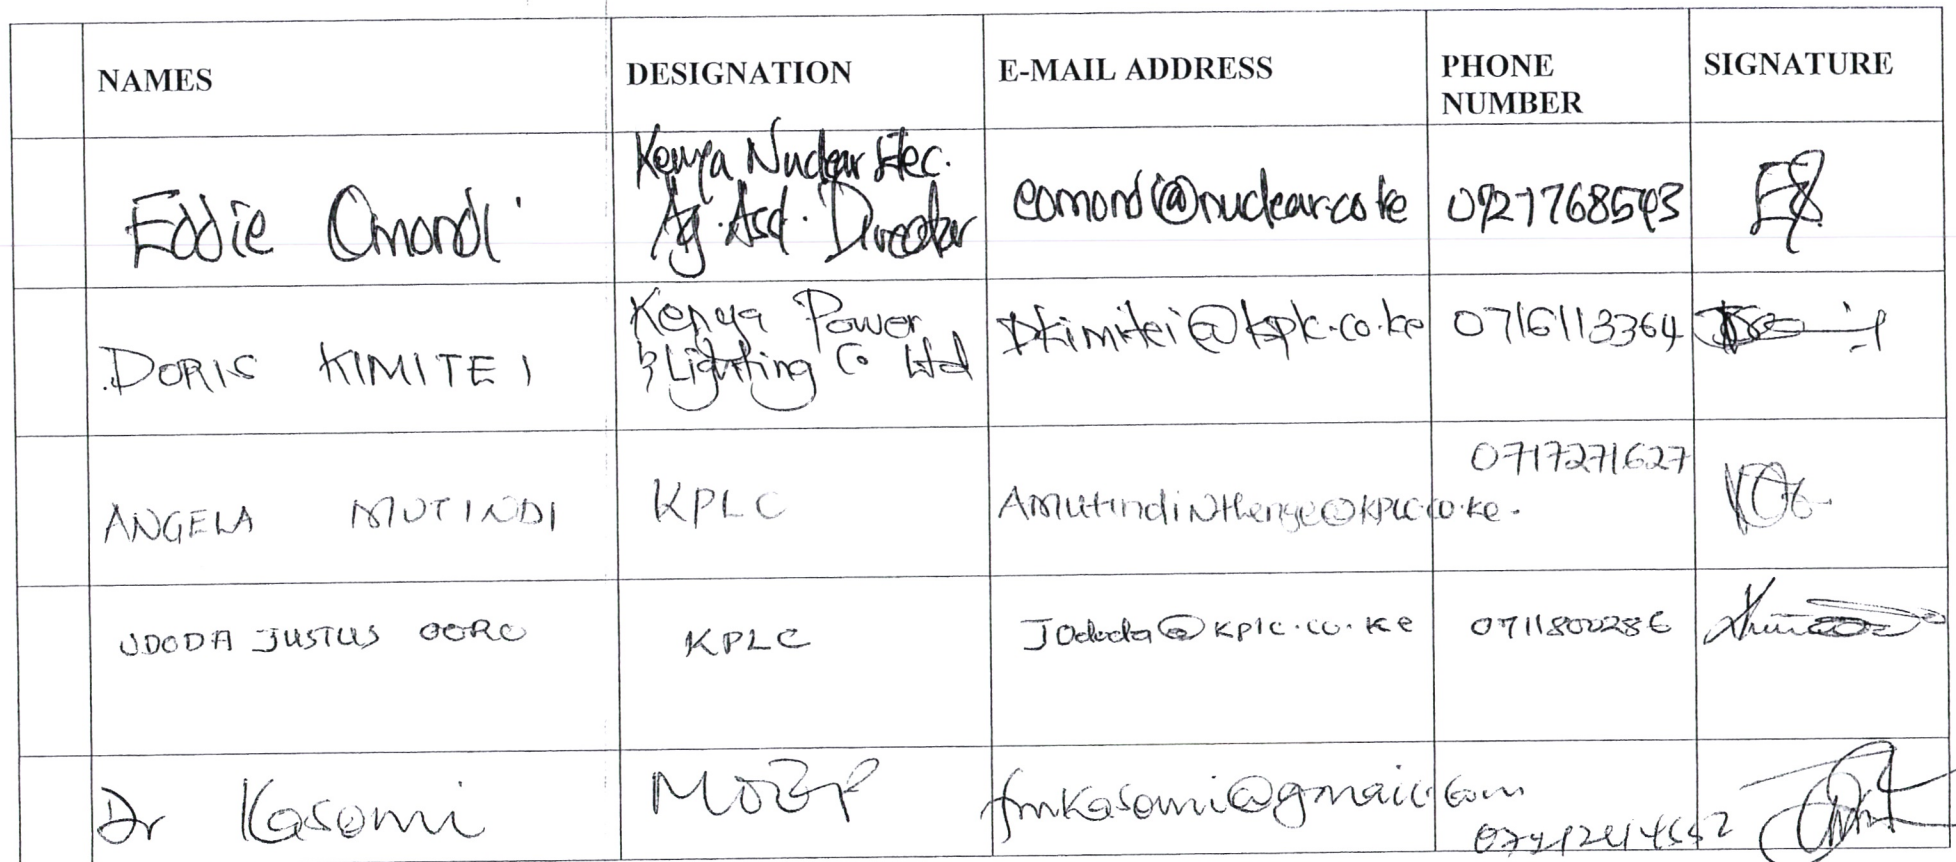 NAMES
DESIGNATION
E-MAIL ADDRESS
PHONE
NUMBER
SIGNATURE
Eddie Omondi
Kenya Nuclear Elec.
Ag. Asst. Director
eomondi@nuclear.co.ke
DORIS KIMITEI
Kenya Power
& Lighting Co Ltd
Dkimitei@kplc.co.ke
0716113364
ANGELA MUTINDI
KPLC
AMutindiNthenge@kplc.co.ke.
0717271627
JUSTUS
KPLC
JOdoda@kplc.co.ke
0711800286
Dr Kasomi
fmkasomi@gmail.com